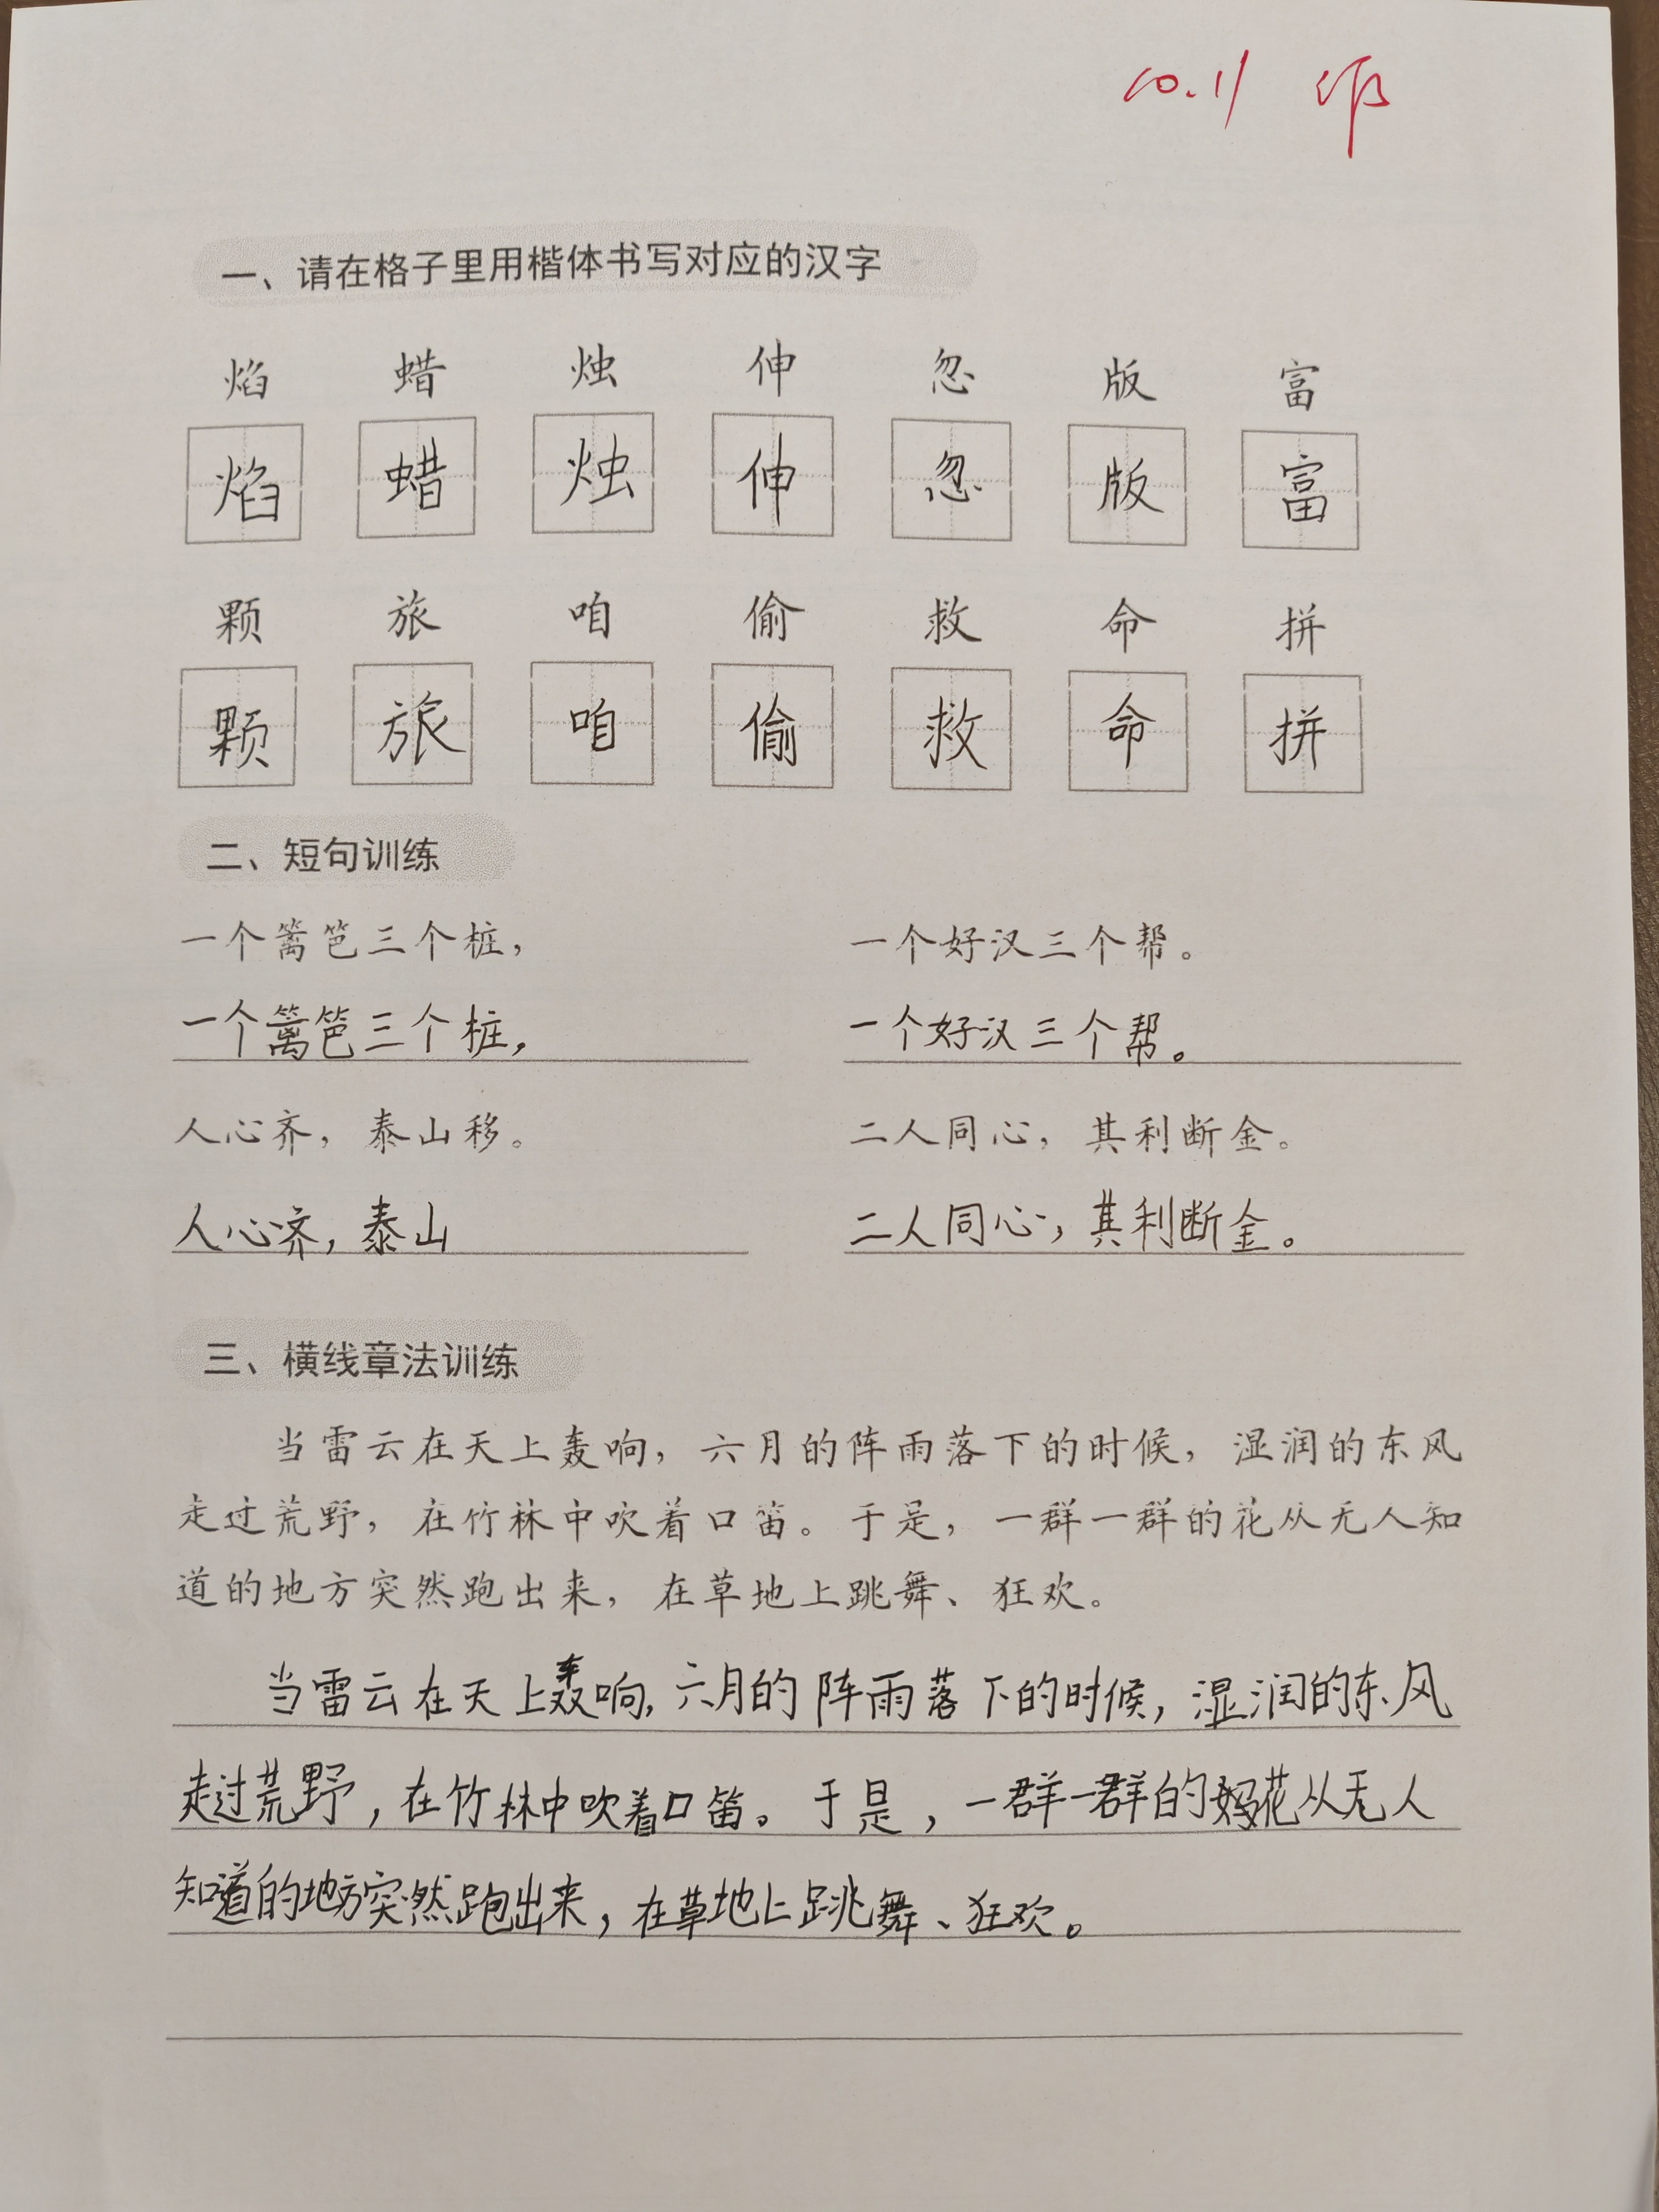 10.11
一、请在格子里用楷体书写对应的汉字
焰 蜡 烛 伸 忽 版 富
焰 蜡 烛 伸 忽 版 富
颗 旅 咱 偷 救 命 拼
颗 旅 咱 偷 救 命 拼
二、短句训练
一个篱笆三个桩， 一个好汉三个帮。
一个篱笆三个桩， 一个好汉三个帮。
人心齐，泰山移。 二人同心，其利断金。
人心齐，泰山 二人同心，其利断金。
三、横线章法训练
当雷云在天上轰响，六月的阵雨落下的时候，湿润的东风
走过荒野，在竹林中吹着口笛。于是，一群一群的花从无人知
道的地方突然跑出来，在草地上跳舞、狂欢。
当雷云在天上轰响，六月的阵雨落下的时候，湿润的东风
走过荒野，在竹林中吹着口笛。于是，一群一群的花从无人
知道的地方突然跑出来，在草地上跳舞、狂欢。